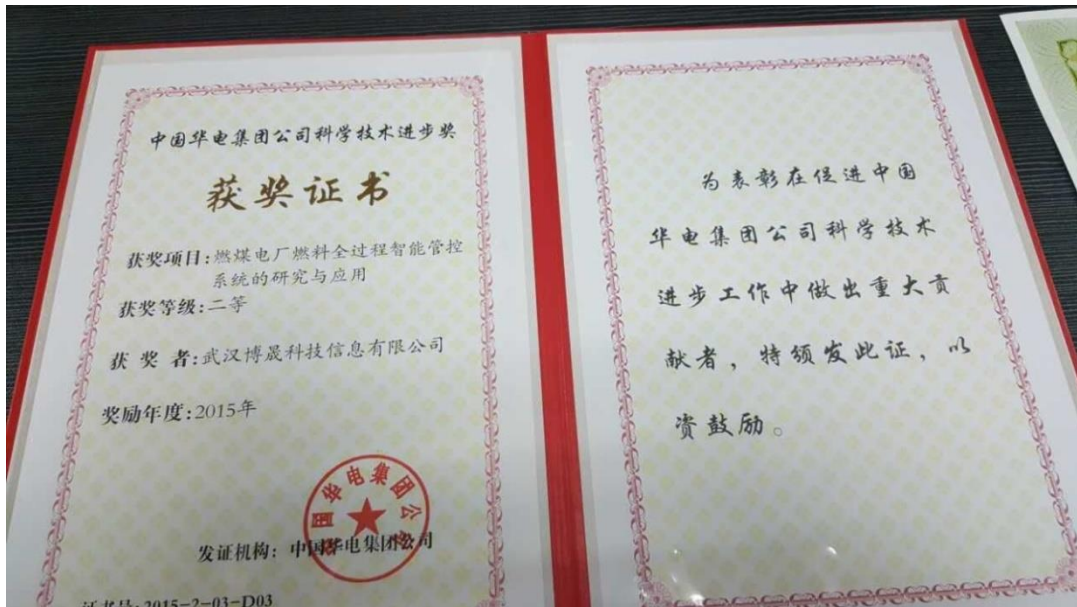 中国华电集团公司科学技术进步奖
获奖证书
获奖项目:燃煤电厂燃料全过程智能管控
系统的研究与应用
获奖等级:二等
获 奖 者:武汉博晟科技信息有限公司
奖励年度:2015年
中国华电集团公司
发证机构: 中国华电集团公司
证书号:2015-2-03-D03
为表彰在促进中国
华电集团公司科学技术
进步工作中做出重大贡
献者,特颁发此证,以
资鼓励。